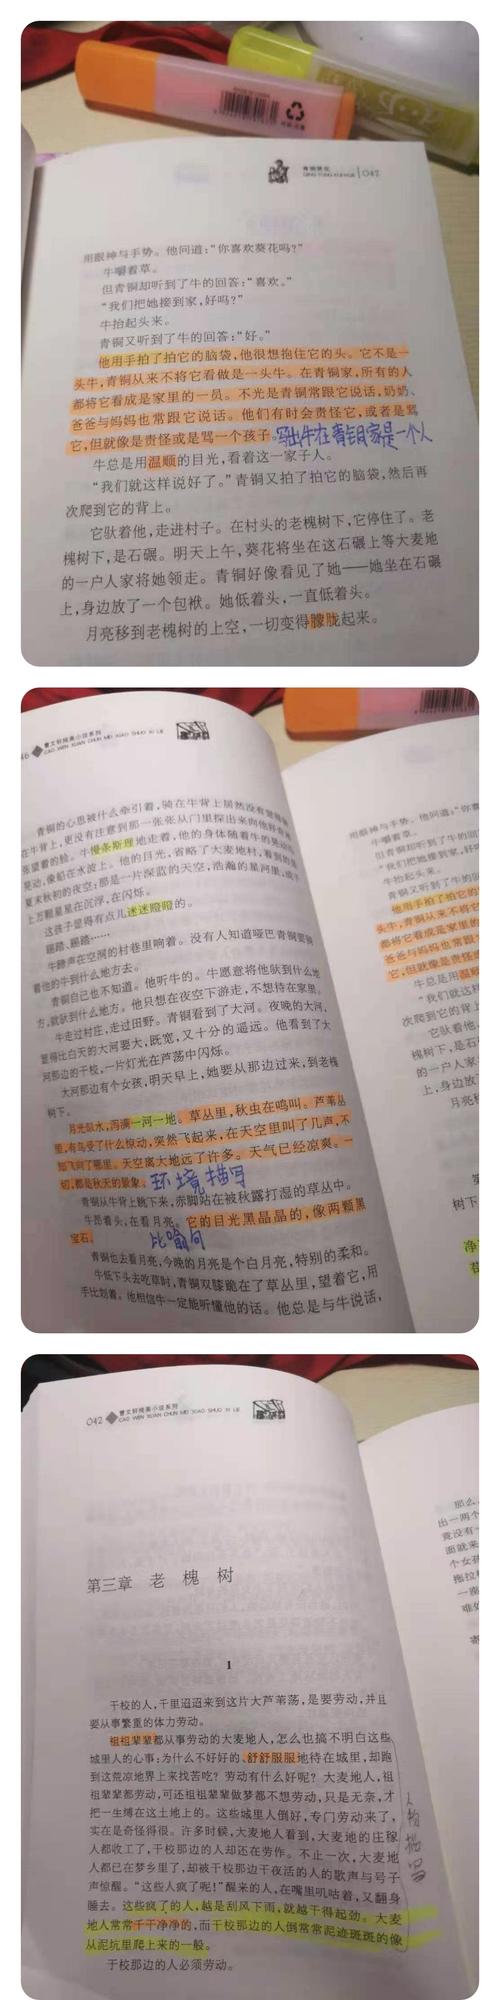 青铜葵花
QING TONG KUI HUA
047
用眼神与手势。他问道：“你喜欢葵花吗？”
牛嚼着草。
但青铜却听到了牛的回答：“喜欢。”
“我们把她接到家，好吗？”
牛抬起头来。
青铜又听到了牛的回答：“好。”
他用手拍了拍它的脑袋，他很想抱住它的头。它不是一
头牛，青铜从来不将它看做是一头牛。在青铜家，所有的人
都将它看成是家里的一员。不光是青铜常跟它说话，奶奶、
爸爸与妈妈也常跟它说话。他们有时会责怪它，或者是骂
它，但就像是责怪或是骂一个孩子。写出牛在青铜家是一个人
牛总是用温顺的目光，看着这一家子人。
“我们就这样说好了。”青铜又拍了拍它的脑袋，然后再
次爬到它的背上。
它驮着他，走进村子。在村头的老槐树下，它停住了。老
槐树下，是石碾。明天上午，葵花将坐在这石碾上等大麦地
的一户人家将她领走。青铜好像看见了她——她坐在石碾
上，身边放了一个包袱。她低着头，一直低着头。
月亮移到老槐树的上空，一切变得朦胧起来。
46
曹文轩纯美小说系列
CAO WEN XUAN CHUN MEI XIAO SHUO XI LIE
青铜的心思被什么牵引着，骑在牛背上居然没有觉得
在牛背上，更没有注意到那一张张从门里探出来向他好奇
张望着的脸。牛慢条斯理地走着，他的身体随着牛的
晃动，像船在水波上。他的目光，省略了大麦地村，看到的是
夏末秋初的夜空：那是一片深蓝的天空，浩瀚的星河里，成千
上万颗星星在沉浮，在闪烁。
这孩子显得有点儿迷迷瞪瞪的。
踢踏、踢踏……
牛蹄声在空洞的村巷里响着。没有人知道哑巴青铜要骑
着他的牛到什么地方去。
青铜自己也不知道。他听牛的。牛愿意将他驮到什么地
方，就驮到什么地方。他只想在夜空下游走，不想待在家里。
牛走过村庄，走过田野。青铜看到了大河。夜晚的大河，
显得比白天的大河要大，既宽，又十分的遥远。他看到了大
河那边的干校，一片灯光在芦荡中闪烁。
大河那边有个女孩，明天早上，她要从那边过来，到老槐
树下。
月光似水，泻满一河一地。草丛里，秋虫在鸣叫。芦苇丛
里，有鸟受了什么惊动，突然飞起来，在天空里叫了几声，不
知飞向了哪里。天空离大地远了许多。天气已经凉爽。一
切，都是秋天的景象。环境描写
青铜从牛背上跳下来，赤脚站在被秋露打湿的草丛中。
牛昂着头，在看月亮。它的目光黑晶晶的，像两颗黑
宝石。比喻句
青铜也去看月亮，今晚的月亮是个白月亮，特别的柔和。
牛低下头去吃草时，青铜双膝跪在了草丛里，望着它，用
手比划着。他相信牛一定能听懂他的话。他总是与牛说话，
用眼神与手势。他问道：“你喜
牛嚼着草。
但青铜却听到了牛的回
“我们把她接到家，好
牛抬起头来。
青铜又听到了牛的
他用手拍了拍它的
头牛，青铜从来不将它
都将它看成是家里的
爸爸与妈妈也常跟它
它，但就像是责怪
牛总是用温
“我们就这样
次爬到它的背
它驮着
槐树下，是
的一户人
上，身
月亮
树下
042
曹文轩纯美小说系列
CAO WEN XUAN CHUN MEI XIAO SHUO XI LIE
第三章 老槐树
1
干校的人，千里迢迢来到这片大芦苇荡，是要劳动，并且
要从事繁重的体力劳动。
祖祖辈辈都从事劳动的大麦地人，怎么也搞不明白这些
城里人的心事：为什么不好好的、舒舒服服地待在城里，却跑
到这荒凉地界上来找苦吃？劳动有什么好呢？大麦地人，祖
祖辈辈都劳动，可还祖祖辈辈做梦都不想劳动，只是无奈，才
把一生缚在这土地上的。这些城里人倒好，专门劳动来了，
实在是奇怪得很。许多时候，大麦地人看到，大麦地的庄稼
人都收工了，干校那边的人却还在劳作。不止一次，大麦地
人都已在梦乡里了，却被干校那边干夜活的人的歌声与号子
声惊醒。“这些人疯了呢！”醒来的人，在嘴里叽咕着，又翻身
睡去。这些疯了的人，越是刮风下雨，就越干得起劲。大麦
地人常常干干净净的，而干校那边的人倒常常泥迹斑斑的像
从泥坑里爬上来的一般。
于校那边的人必须劳动。
人物描写
那么
出一两个
竟没有一
面就来
个女孩
拖拉
一座
唯如